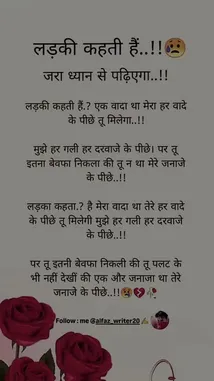 लड़की कहती हैं..!!😢
जरा ध्यान से पढ़िएगा..!!
लड़की कहती हैं.? एक वादा था मेरा हर वादे
के पीछे तू मिलेगा..!!
मुझे हर गली हर दरवाजे के पीछे। पर तू
इतना बेवफा निकला की तू न था मेरे जनाजे
के पीछे..!!
लड़का कहता.? है मेरा वादा था तेरे हर वादे
के पीछे तू मिलेगी मुझे हर गली हर दरवाजे
के पीछे..!!
पर तू इतनी बेवफा निकली की तू पलट के
भी नहीं देखीं की एक और जनाजा था तेरे
जनाजे के पीछे..!!😢💔🥀
Follow : me @alfaz_writer20 ✍️